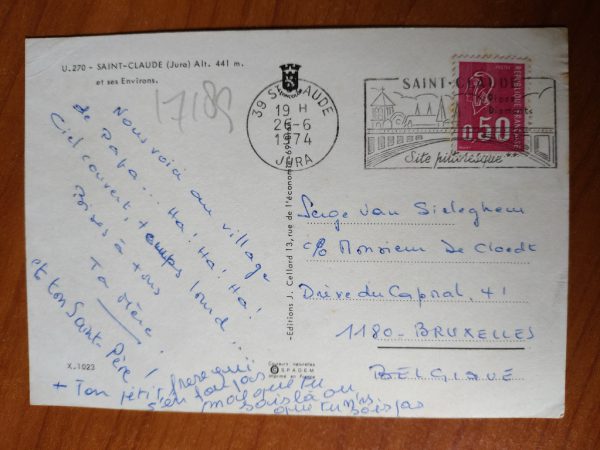 U.270 - SAINT-CLAUDE (Jura) Alt. 441 m.
et ses Environs.
17185
Nous voici au village
de Papa... Ha! Ha! Ha!
Ciel couvert, temps lourd...
Bises à tous
Ta mère
et ton Saint-Père!
+ Ton petit frère qui
s'en fout pas
mal que tu
sois là ou
que tu n'y
sois pas
X.1023
39 ST CLAUDE
19 H
26-6
1974
JURA
SAINT-CLAUDE
Site pittoresque
POSTES
REPUBLIQUE FRANÇAISE
0,50
-Editions J. Cellard 13, rue de l'économie
Couleurs naturelles
SPADEM
Imprimé en France
Serge Van Sieleghem
c/o Monsieur De Cloedt
Drève du Caporal, 41
1180-BRUXELLES
BELGIQUE